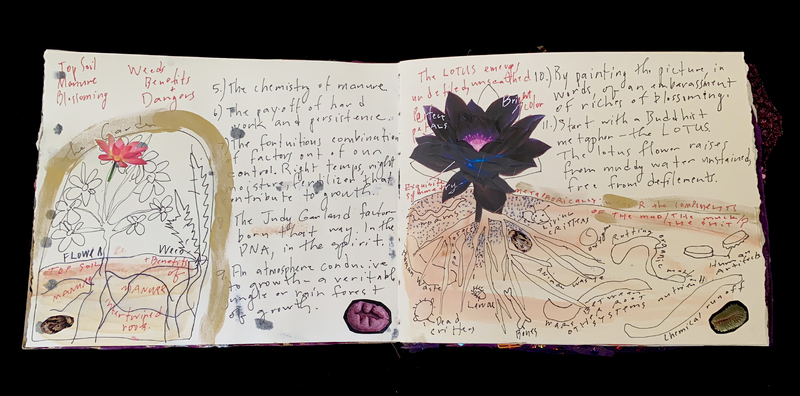 Top Soil
Manure
Blossoming
Weeds
Benefits
+
Dangers
The Garden
FLOWER
Weeds
TOP SOIL
+ Benefits
of
MANURE
MANURE
intertwined
roots.
5.) The chemistry of manure
6.) The pay-off of hard
work and persistence.
7. The fortuitous combination
of factors out of our
control. Right temps, right
moisture, fertilizer that
contribute to growth.
8. The Judy Garland factor
born that way. In the
DNA, in the spirit.
9. An atmosphere conducive
to growth - a veritable
jungle or rain forest
of growth.
The LOTUS
undefiled, unscathed
Bright
color
10.) By painting the picture, in
words, of an embarassment
of riches of blossoming.
11.) Start with a Buddhist
metaphor - the LOTUS.
The lotus flower raises
from muddy water unstained,
free from defilements.
metaphorically
OR the complexity
OF THE MUD/THE MUCK/
THE SHIT!
Living
critters
Rotting
Human
Artifacts
Animal waste
nutrients
Between
THE ROOT
systems
Larvae
Dead
critters
Bones
Chemical run off